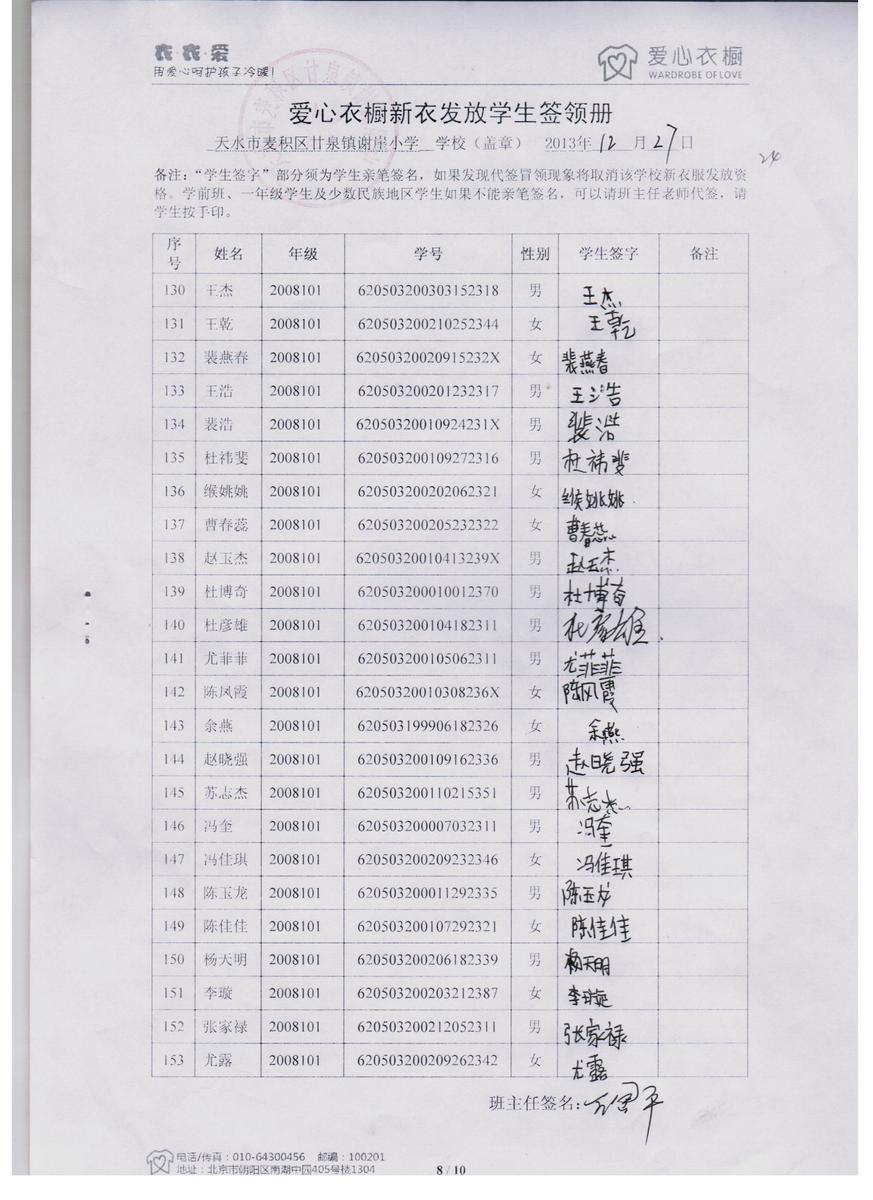 衣·衣·爱
用爱心呵护孩子冷暖!
爱心衣橱
WARDROBE OF LOVE
爱心衣橱新衣发放学生签领册
天水市麦积区甘泉镇谢崖小学 学校（盖章） 2013年 12 月 27 日
24
备注：“学生签字”部分须为学生亲笔签名，如果发现代签冒领现象将取消该学校新衣服发放资
格。学前班、一年级学生及少数民族地区学生如果不能亲笔签名，可以请班主任老师代签，请
学生按手印。
序号 姓名 年级 学号 性别 学生签字 备注
130 王杰 2008101 620503200303152318 男 王杰
131 王乾 2008101 620503200210252344 女 王乾
132 裴燕春 2008101 62050320020915232X 女 裴燕春
133 王浩 2008101 620503200201232317 男 王浩
134 裴浩 2008101 62050320010924231X 男 裴浩
135 杜祎斐 2008101 620503200109272316 男 杜祎斐
136 缑姚姚 2008101 620503200202062321 女 缑姚姚
137 曹春蕊 2008101 620503200205232322 女 曹春蕊
138 赵玉杰 2008101 62050320010413239X 男 赵玉杰
139 杜博奇 2008101 620503200010012370 男 杜博奇
140 杜彦雄 2008101 620503200104182311 男 杜彦雄
141 尤菲菲 2008101 620503200105062311 男 尤菲菲
142 陈凤霞 2008101 62050320010308236X 女 陈凤霞
143 余燕 2008101 620503199906182326 女 余燕
144 赵晓强 2008101 620503200109162336 男 赵晓强
145 苏志杰 2008101 620503200110215351 男 苏志杰
146 冯奎 2008101 620503200007032311 男 冯奎
147 冯佳琪 2008101 620503200209232346 女 冯佳琪
148 陈玉龙 2008101 620503200011292335 男 陈玉龙
149 陈佳佳 2008101 620503200107292321 女 陈佳佳
150 杨天明 2008101 620503200206182339 男 杨天明
151 李璇 2008101 620503200203212387 女 李璇
152 张家禄 2008101 620503200212052311 男 张家禄
153 尤露 2008101 620503200209262342 女 尤露
班主任签名:
电话/传真：010-64300456 邮编：100201
地址：北京市朝阳区南湖中园405号楼1304
8 / 10